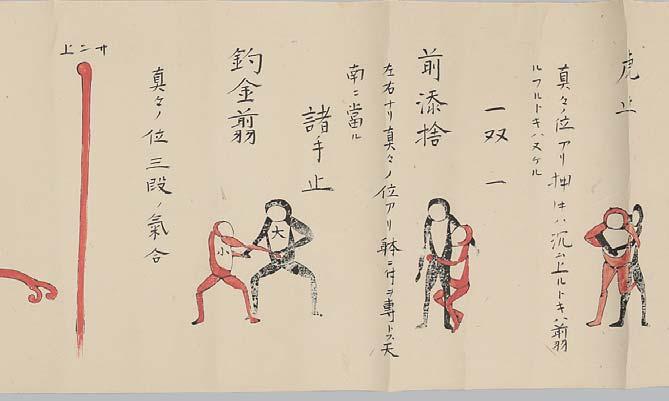 虎止
真々ノ位アリ押キハ沉ム上ルトキハ前羽
ルフルトキハヌケル
一双一
前添捨
左右ナリ真々ノ位アリ躰ニ付ヲ専トス天
南ニ當ル
諸手止
大
小
釣金翦
真々ノ位三段ノ氣合
上ニサ